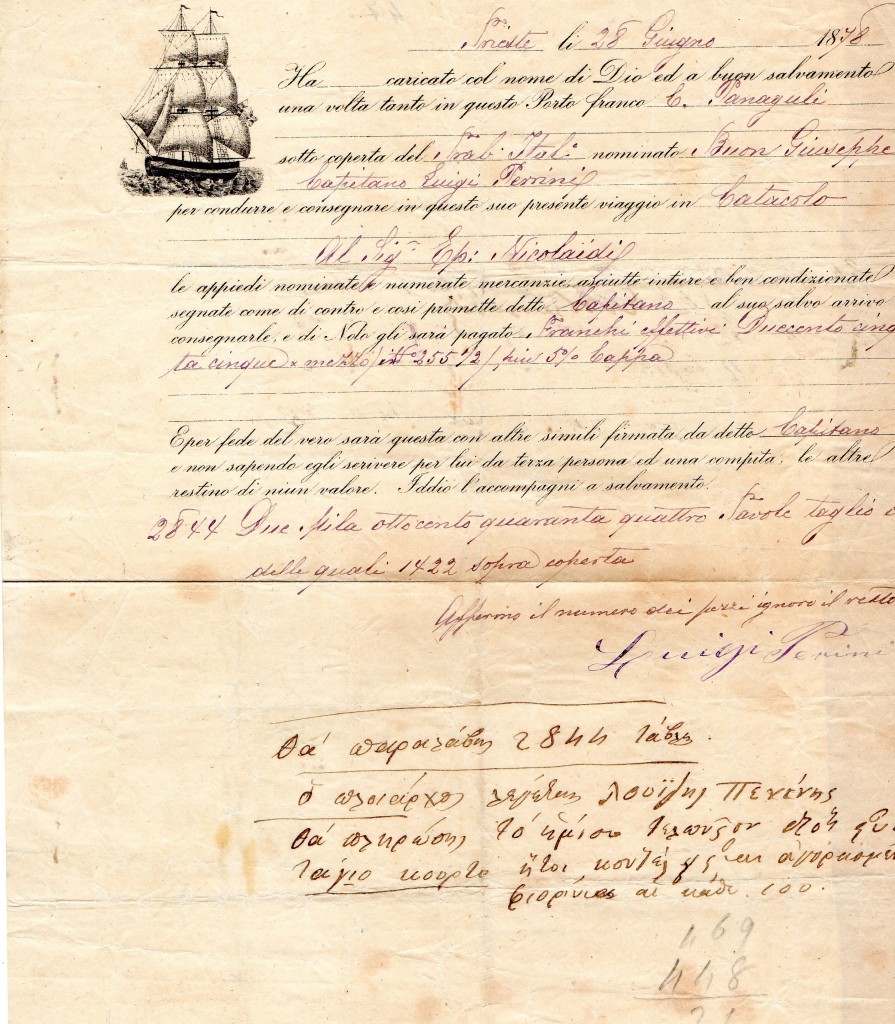 Trieste li 28 Giugno 1878
Ha caricato col nome di Dio ed a buon salvamento
una volta tanto in questo Porto franco C. Panaguli
sotto coperta del Trab. Ital.º nominato Buon Giuseppe
Capitano Luigi Perrini
per condurre e consegnare in questo suo presente viaggio in Catacolo
Al Sigr. Ep: Nicolaidi
le appiedi nominate e numerate mercanzie, asciutte intiere e ben condizionate
segnate come di contro e così promette detto Capitano al suo salvo arrivo
consegnarle, e di Nolo gli sarà pagato Franchi effettivi Duecento cinq
ta cinque e mezzo 255 1/2 / più 5% Cappa
E per fede del vero sarà questa con altre simili firmata da detto Capitano
e non sapendo egli scrivere per lui da terza persona ed una compita, le altre
restino di niun valore. Iddio l'accompagni a salvamento.
2844 Due Mila ottocento quaranta quattro Tavole taglio
delle quali 1422 sopra coperta
Affermo il numero dei pezzi ignoro il resto
Luigi Perini
θά παραλάβης 2844 τάβλες.
ὁ πλοίαρχος λέγεται Λουΐζης Πενένης
θά πληρώσης τό ἥμισυ
τάγιο κούρτο ἤτοι
φιορίνια κάθε 100.
469
448
21